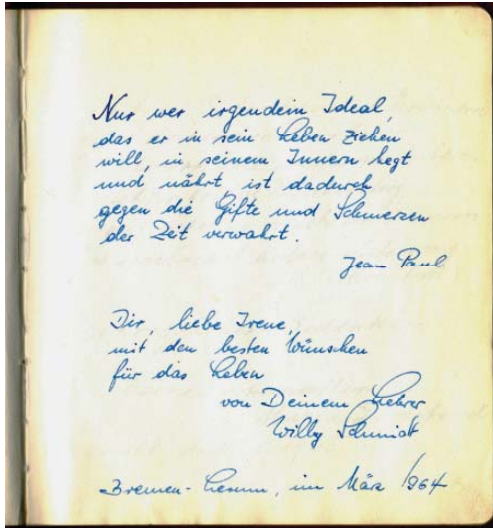 Nur wer irgendein Ideal,
das er in sein Leben ziehen
will, in seinem Innern hegt
und nährt, ist dadurch
gegen die Gifte und Schmerzen
der Zeit verwahrt.
Jean Paul
Dir, liebe Irene,
mit den besten Wünschen
für das Leben
von Deinem Lehrer
Willy Schmidt
Bremen-Lesum, im März 1964